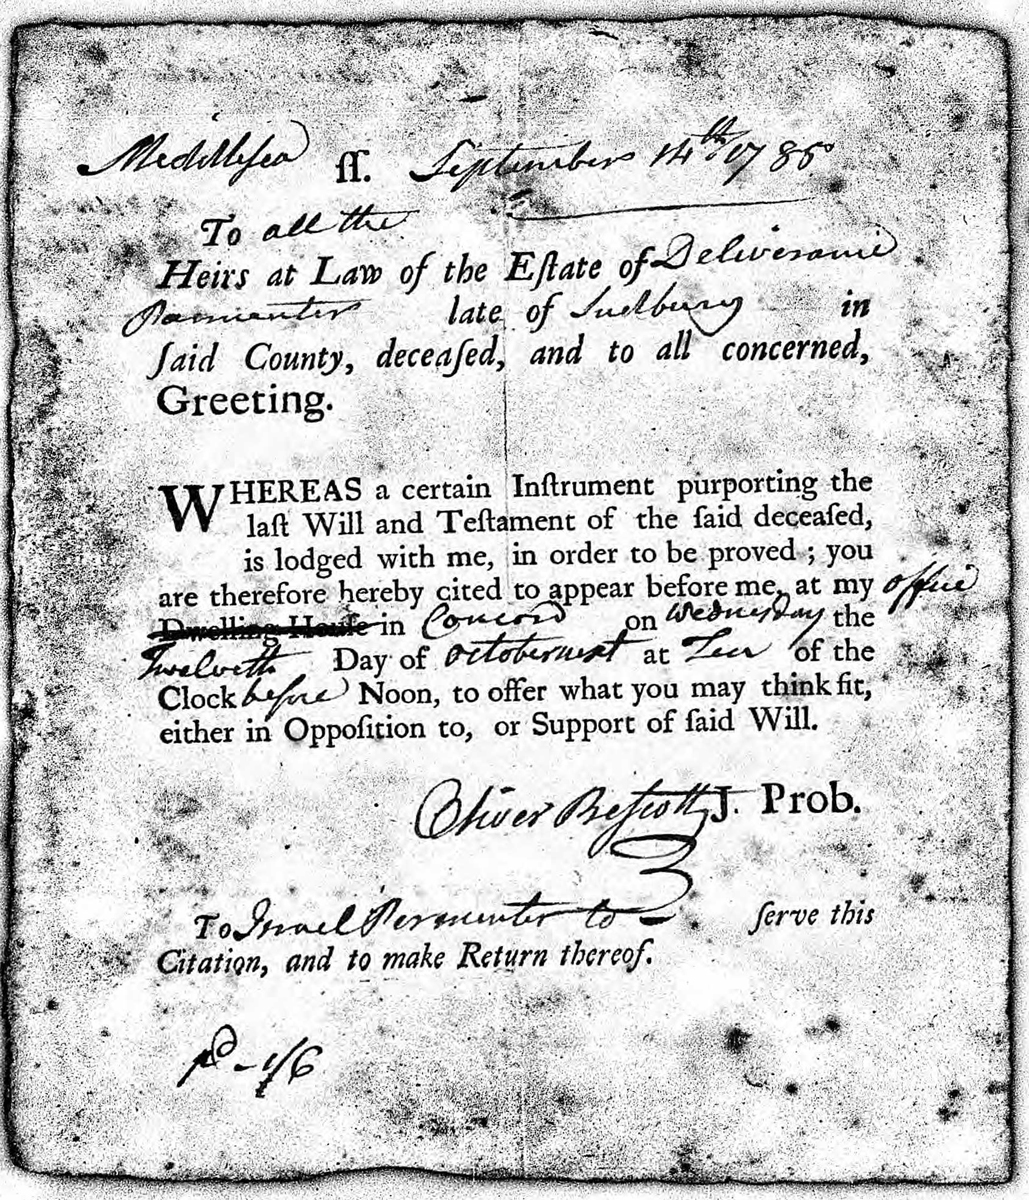 Middleſex ſſ. September 14th. 1785
To all the
Heirs at Law of the Eſtate of Deliverance
Parmenter late of Sudbury in
ſaid County, deceaſed, and to all concerned,
Greeting.
WHEREAS a certain Inſtrument purporting the
laſt Will and Teſtament of the ſaid deceaſed,
is lodged with me, in order to be proved ; you
are therefore hereby cited to appear before me, at my office
Dwelling Houſe in Concord on Wednesday the
Twelveth Day of October next at Ten of the
Clock before Noon, to offer what you may think fit,
either in Oppoſition to, or Support of ſaid Will.
Oliver Preſcott J. Prob.
To Israel Parmenter to ſerve this
Citation, and to make Return thereof.
pd - 1/6